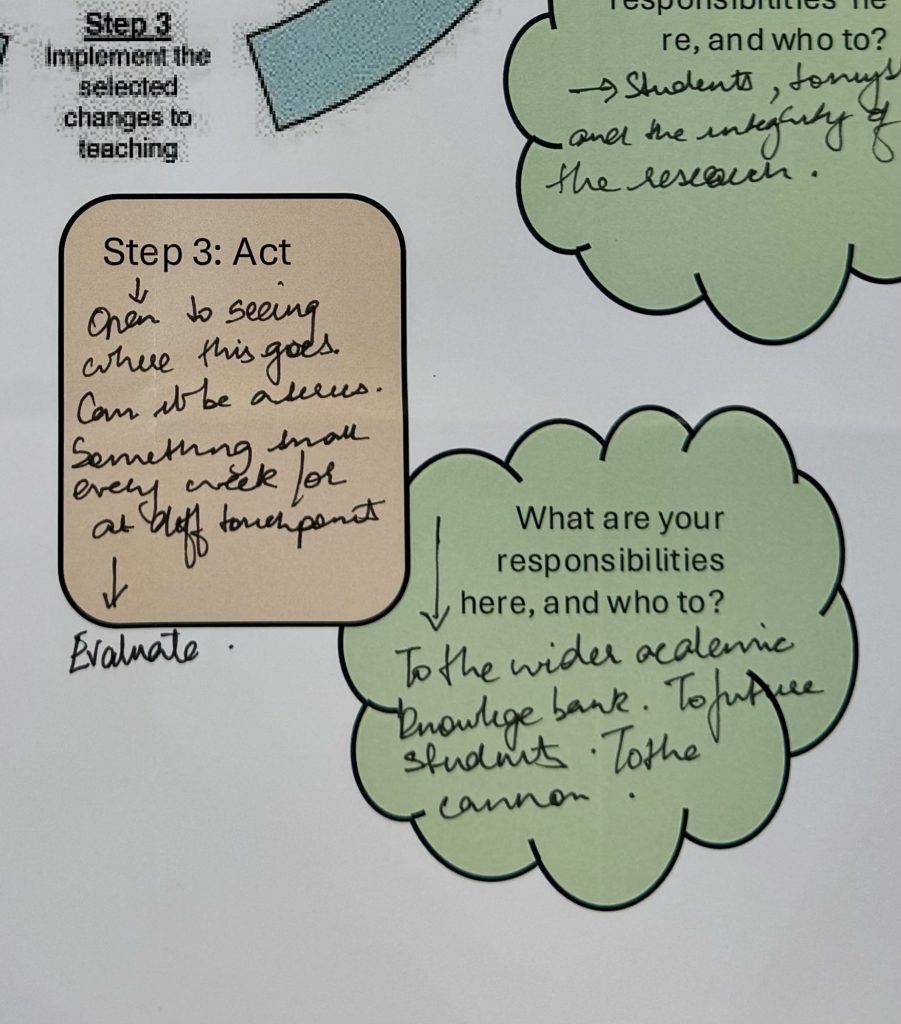 Step 3
Implement the
selected
changes to
teaching
responsibilities he
re, and who to?
→ Students, to mys
and the integrity of
the research.
Step 3: Act
↓
Open to seeing
where this goes.
Can it be a series.
Something small
every week / or
at diff touchpoints
↓
Evaluate.
What are your
responsibilities
here, and who to?
To the wider academic
knowlege bank. To future
students. To the
cannon.